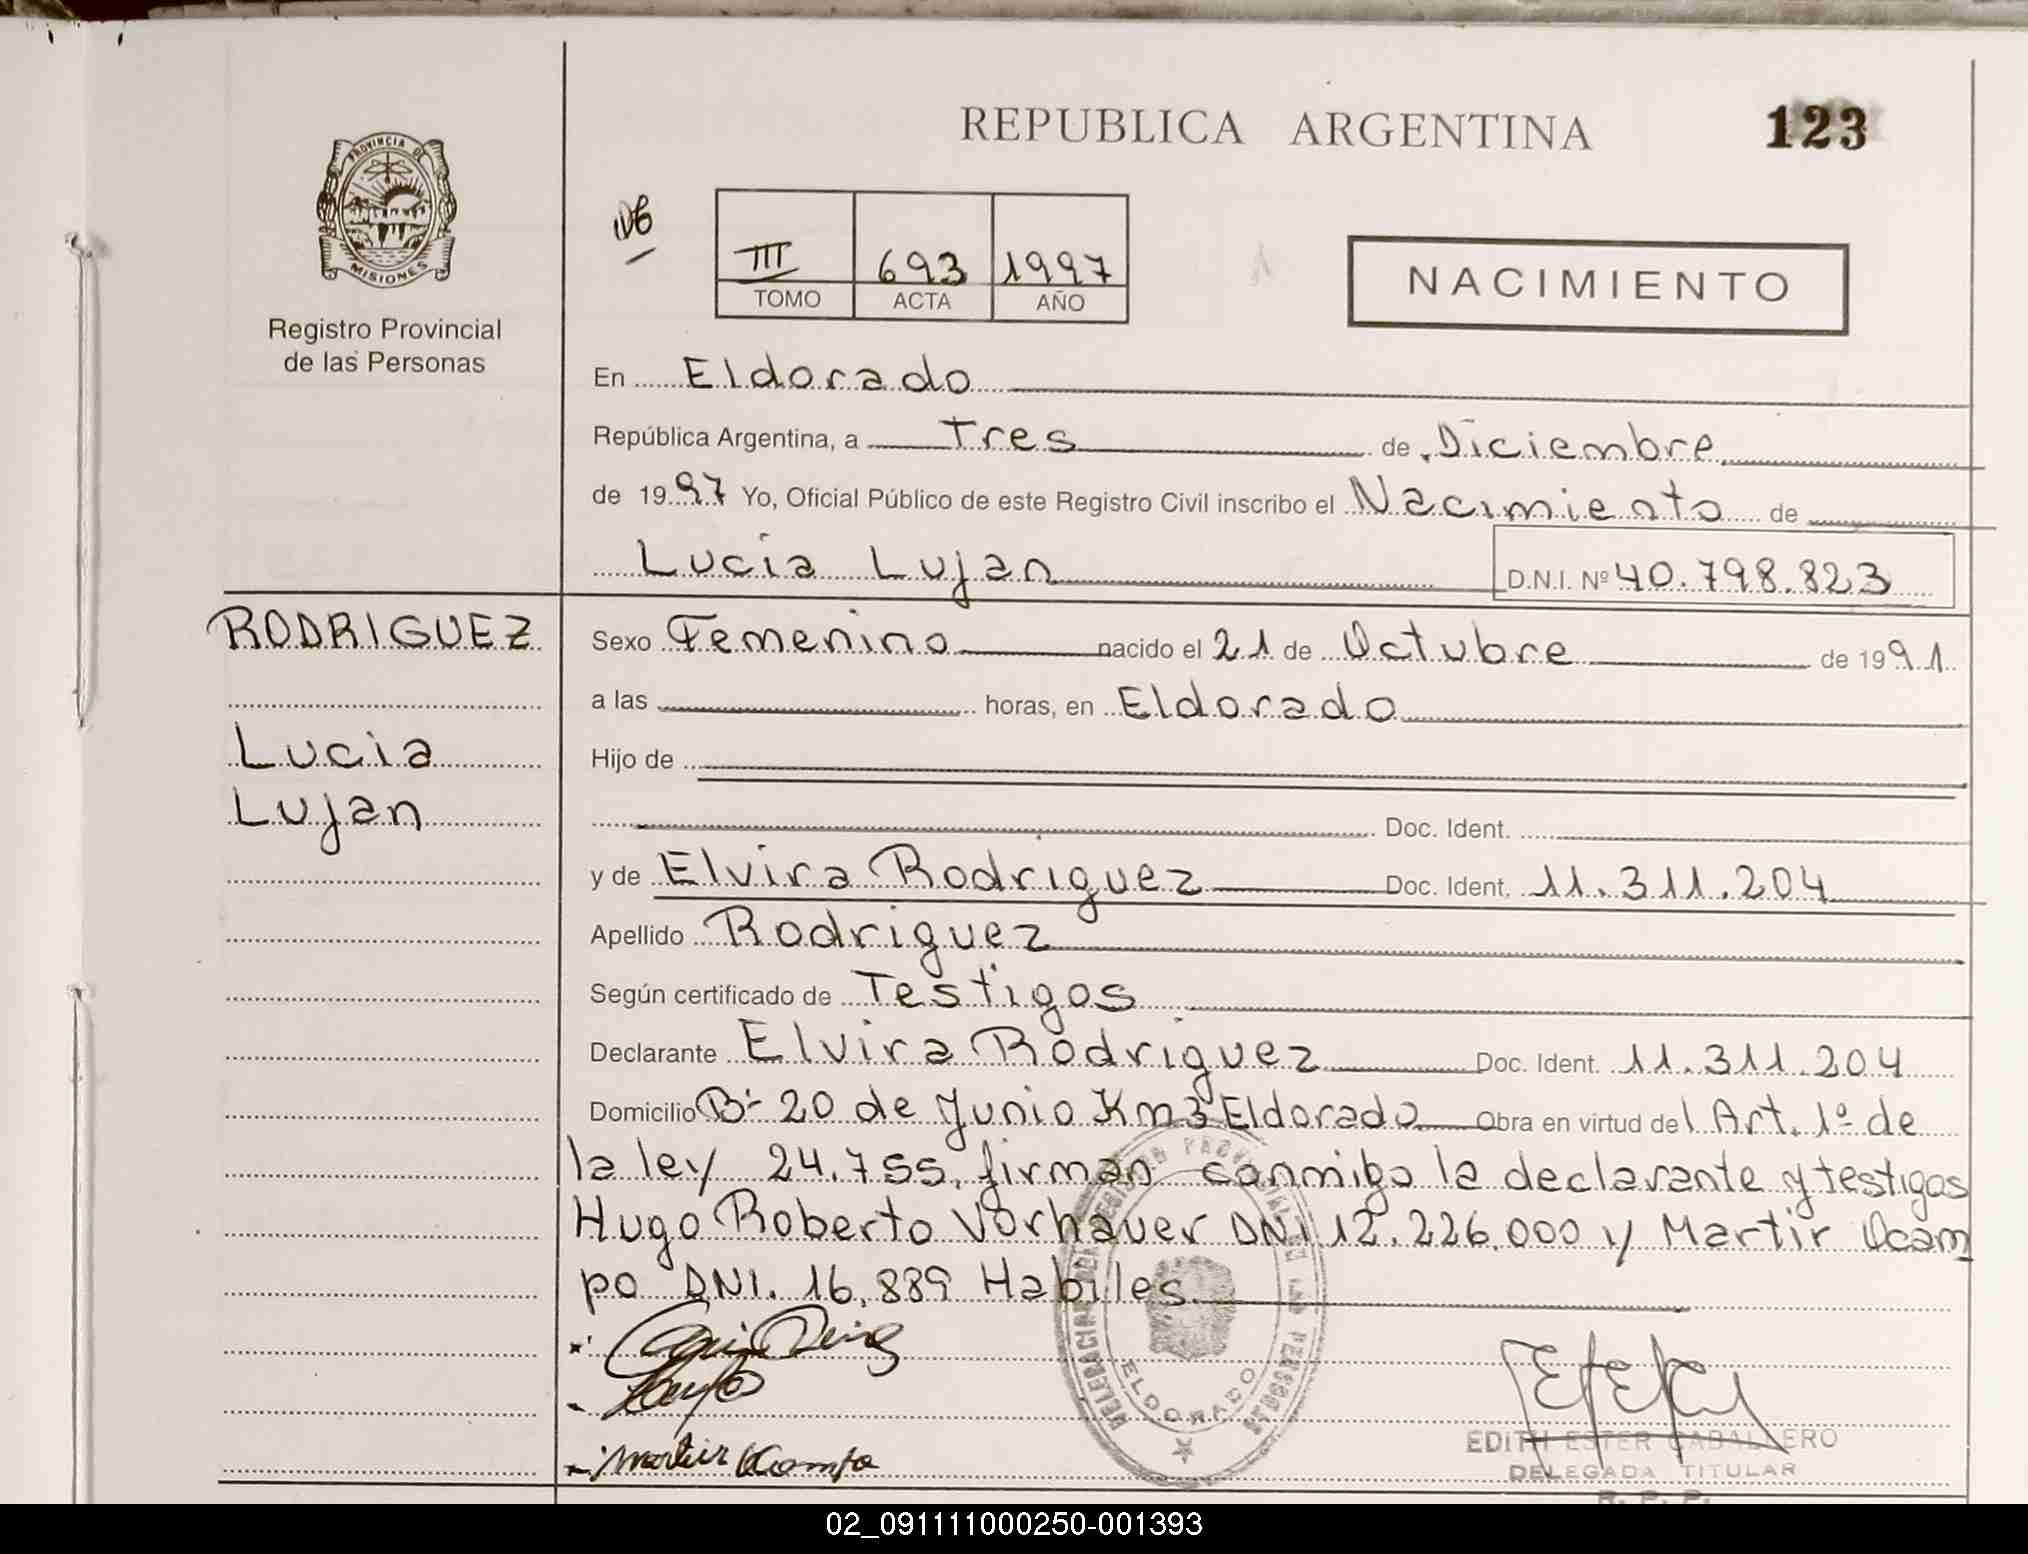 REPUBLICA ARGENTINA
123
PROVINCIA DE
MISIONES
Registro Provincial
de las Personas
III 693 1997
TOMO ACTA AÑO
NACIMIENTO
En Eldorado
República Argentina, a Tres de Diciembre
de 1997 Yo, Oficial Público de este Registro Civil inscribo el Nacimiento de
Lucia Lujan D.N.I. Nº 40.798.823
RODRIGUEZ
Lucia
Lujan
Sexo Femenino nacido el 21 de Octubre de 1991
a las horas, en Eldorado
Hijo de
Doc. Ident.
y de Elvira Rodriguez Doc. Ident. 11.311.204
Apellido Rodriguez
Según certificado de Testigos
Declarante Elvira Rodriguez Doc. Ident. 11.311.204
Domicilio Bº 20 de Junio Km 3 Eldorado Obra en virtud del Art. 1º de
la ley 24.755, firman conmigo la declarante y testigos
Hugo Roberto Vorhauer DNI 12.226.000 y Martir Ocam
po DNI. 16.889 Habiles.
Martir Ocampo
ELDORADO
EDITH ESTER CABALLERO
DELEGADA TITULAR
R. P. P.
02_091111000250-001393